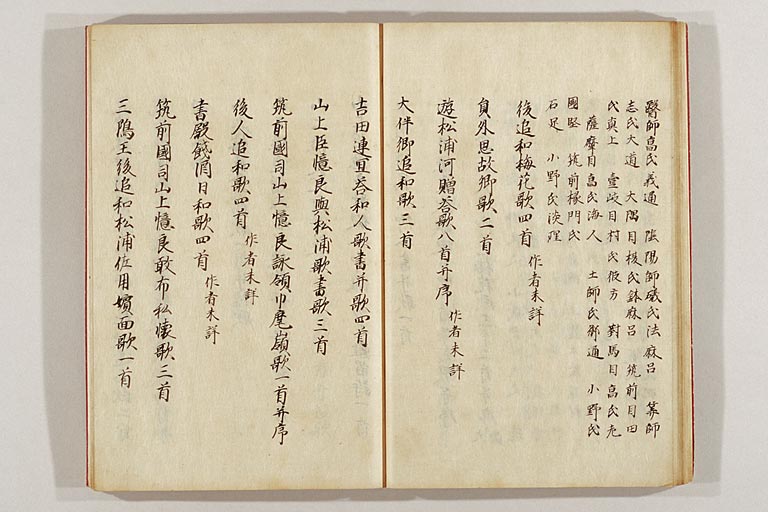 醫師高氏義通 陰陽師礒氏法麻呂 筭師
志氏大道 大隅目榎氏鉢麻呂 筑前目田
氏真上 壹岐目村氏彼方 對馬目高氏老
薩摩目高氏海人 土師氏御通 小野氏
國堅 筑前掾門氏
石足 小野氏淡理
後追和梅花歌四首 作者未詳
員外思故郷歌二首
遊松浦河贈荅歌八首并序 作者未詳
大伴卿追和歌三首
吉田連宜荅和人歌書并歌四首
山上臣憶良與松浦歌書歌三首
筑前國司山上憶良詠領巾麾嶺歌一首并序
後人追和歌四首 作者未詳
書殿餞酒日和歌四首 作者未詳
筑前國司山上憶良敢布私懐歌三首
三嶋王後追和松浦佐用嬪面歌一首